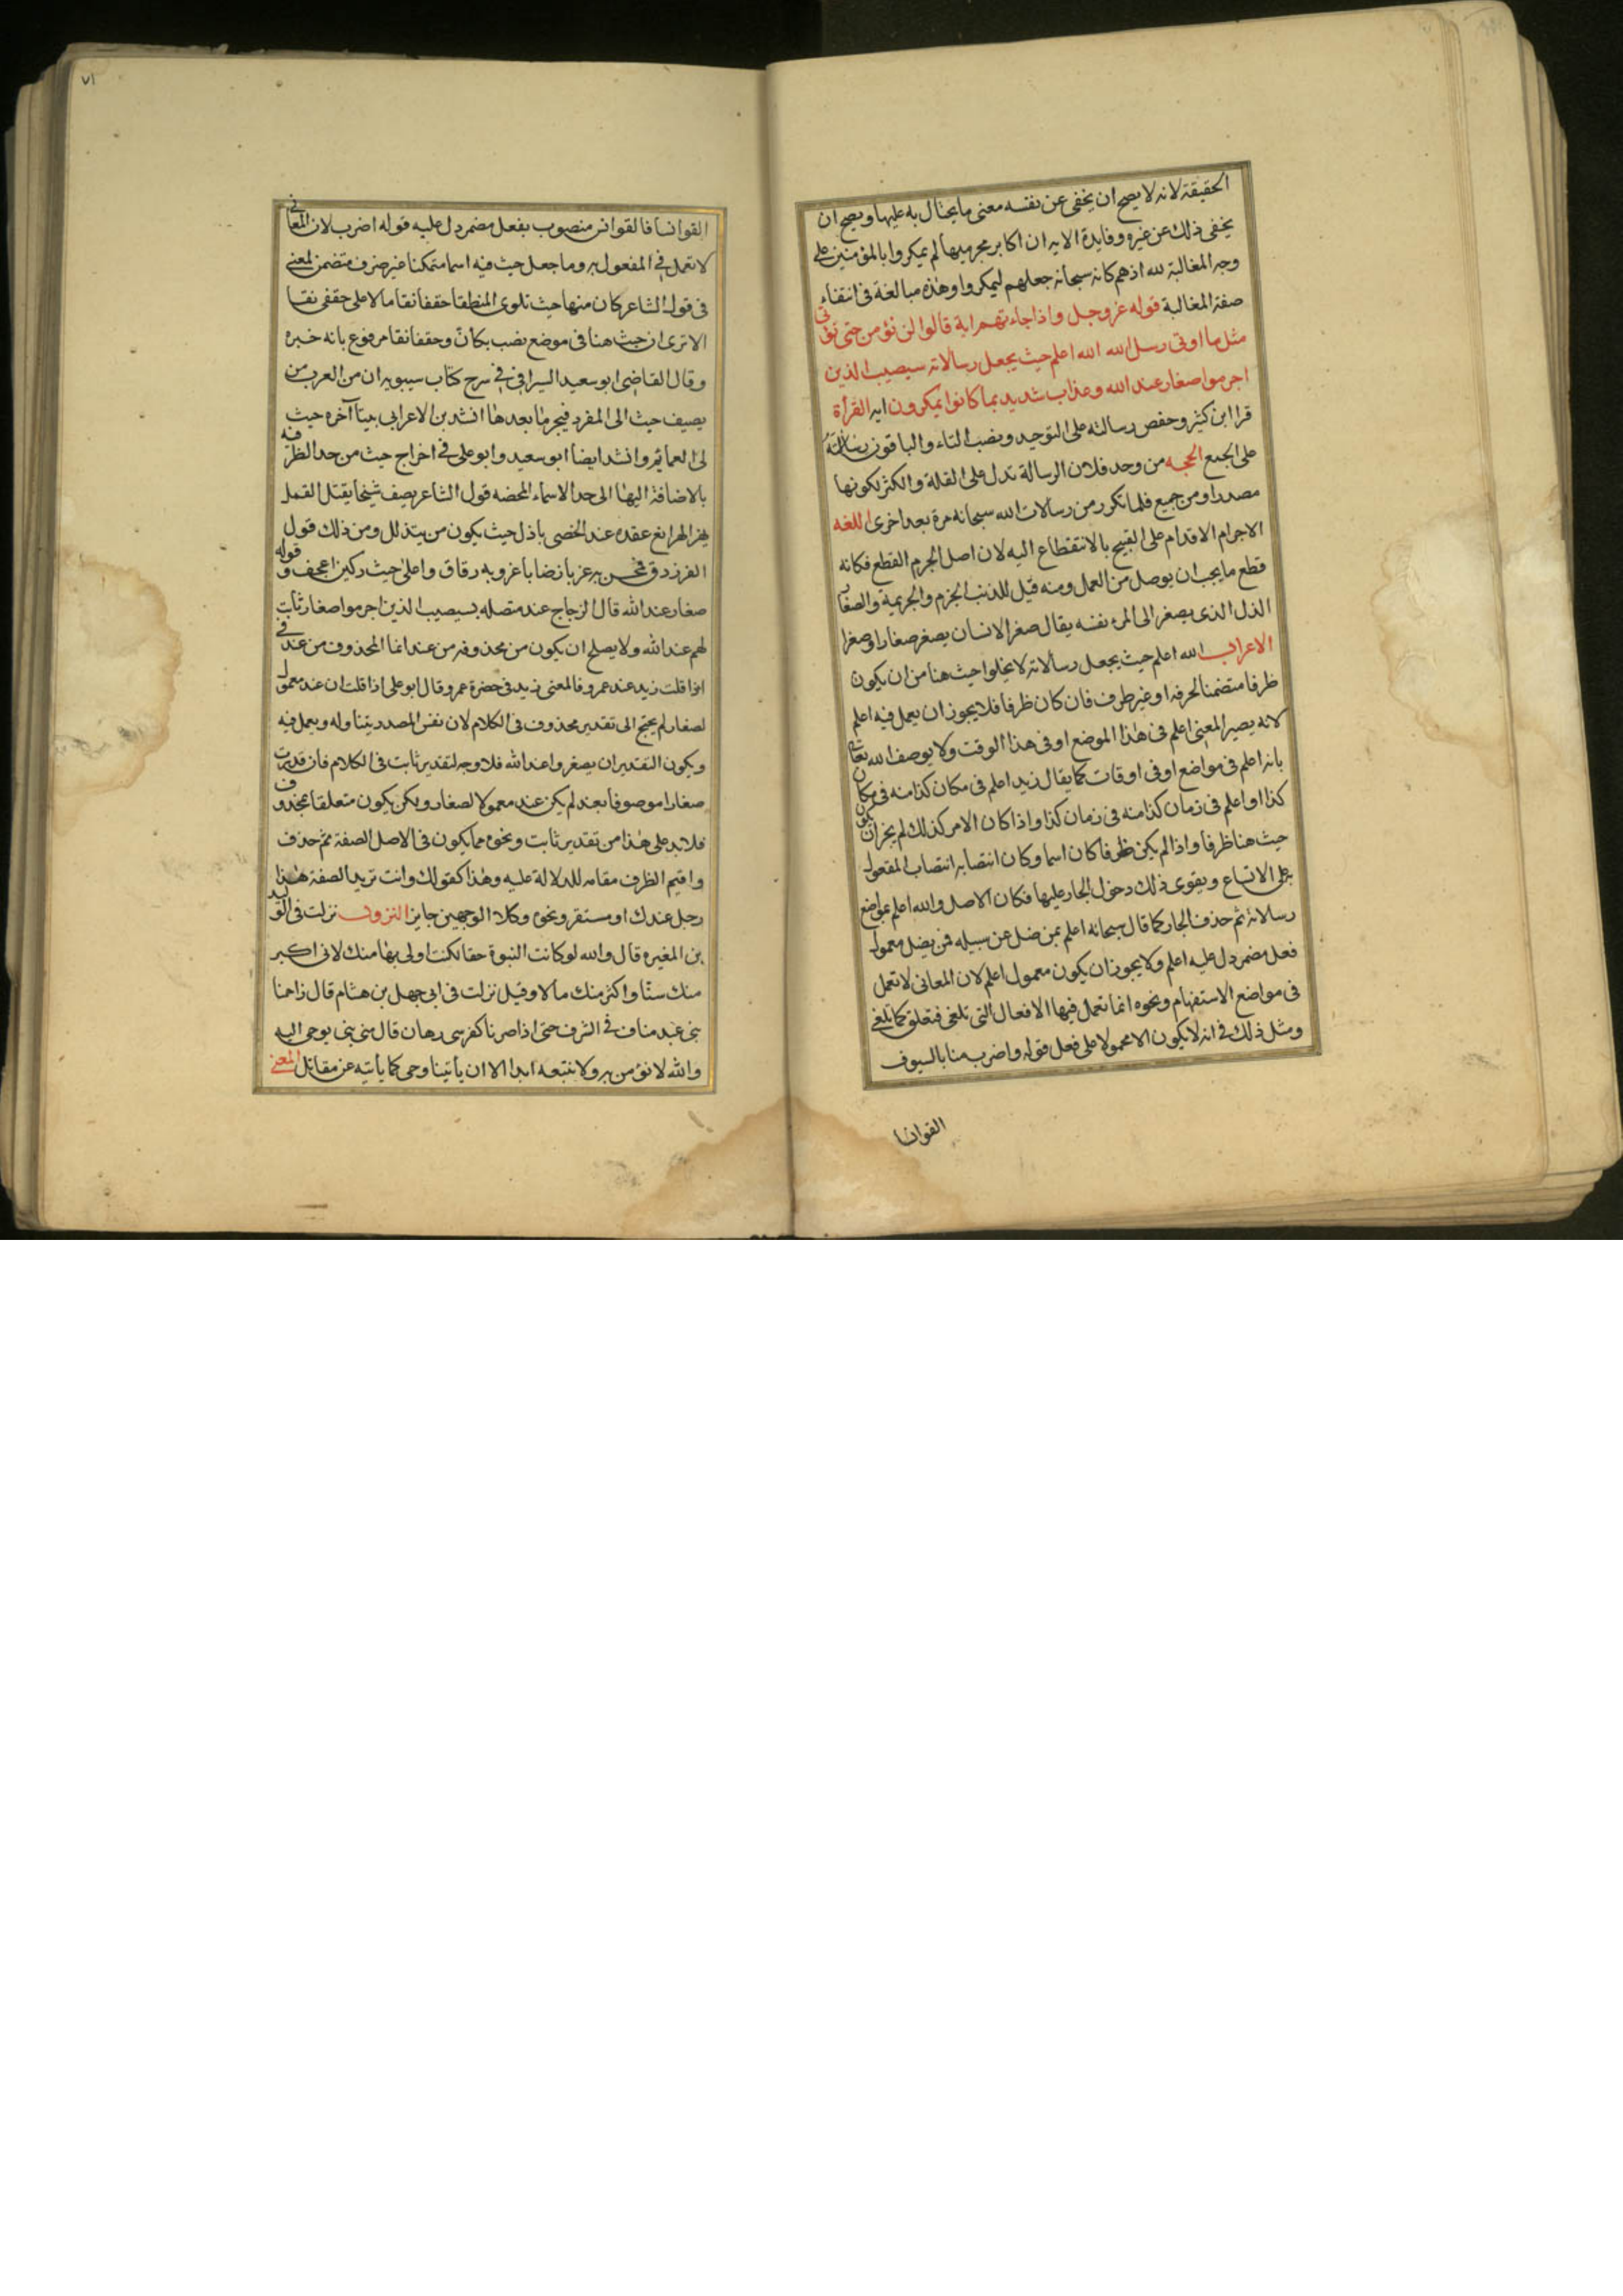 الحقيقة لانه لا يصح ان يخفى عن نفسه معنى ما يحتال به عليها ويصح ان
يخفى ذلك عن غيره وفايدة الايه ان اكابر مجرميها لم يمكروا بالمؤمنين على
وجه المغالبة لله اذ هم كانه سبحانه جعلهم ليمكروا وهذه مبالغة فى انتفاء
صفة المغالبة قوله عز وجل واذا جاءتهم اية قالوا لن نؤمن حتى نؤتى
مثل ما اوتى رسل الله الله اعلم حيث يجعل رسالاته سيصيب الذين
اجرموا صغار عند الله وعذاب شديد بما كانوا يمكرون ايه القرأة
قرا ابن كثير وحفص رسالته على التوحيد ونصب التاء والباقون رسالاته
على الجمع الحجه من وحد فلان الرسالة تدل على القلة والكثر لكونها
مصدرا ومن جميع فلما تكرر من رسالات الله سبحانه مرة بعد اخرى اللغه
الاجرام الاقدام على القبيح بالانتقطاع اليه لان اصل الجرم القطع فكانه
قطع ما يجب ان يوصل من العمل ومنه قيل للذنب الجرم والجريمة والصغار
الذل الذى يصغر الى المرء نفسه يقال صغر الانسان يصغر صغارا وصغرا
الاعراب الله اعلم حيث يجعل رسالاته لا يخلوا حيث هنا من ان يكون
ظرفا متضمنا لحرفه او غير ظرف فان كان ظرفا فلا يجوز ان يعمل فيه اعلم
لانه يصير المعنى اعلم فى هذا الموضع او فى هذا الوقت ولا يوصف الله تعالى
بانه اعلم فى مواضع او فى اوقات كما يقال زيد اعلم فى مكان كذا منه فى مكان
كذا او اعلم فى زمان كذا منه فى زمان كذا واذا كان الامر كذلك لم يجز ان يكون
حيث هنا ظرفا واذا لم يكن ظرفا كان اسما وكان انتصابه انتصاب المفعول
به على الاتساع ويقوى ذلك دخول الجار عليها فكان الاصل والله اعلم بمواضع
رسالاته ثم حذف الجار كما قال سبحانه اعلم بمن ضل عن سبيله فمن يضل معمول
فعل مضمر دل عليه اعلم ولا يجوز ان يكون معمول اعلم لان المعانى لا تعمل
فى مواضع الاستفهام ونحوه انما تعمل فيها الافعال التى تلغى فتعلق كما تلغى
ومثل ذلك فى انه لا يكون الا محمولا على فعل قوله واضرب منا بالسيوف
القوانسا
٧١
القوانسا فالقوانس منصوب بفعل مضمر دل عليه قوله اضرب لان المعانى
لا تعمل فى المفعول به ومما جعل حيث فيه اسما متمكنا غير ظرف متضمن لمعنى
فى قول الشاعر كان منها حيث تلوى المنطقا حقفا نقا مالا على حقفى نقا
الا ترى ان حيث هنا فى موضع نصب بكان وحقفا نقا مرفوع بانه خبره
وقال القاضى ابو سعيد السيرافى فى شرح كتاب سيبويه ان من العرب من
يضيف حيث الى المفرد فيجر ما بعدها انشد بن الاعرابى بيتا آخره حيث
لى العمائم وانشد ايضا ابو سعيد وابو على فى اخراج حيث من حد الظرفه
بالاضافة اليها الى حد الاسماء المحضه قول الشاعر يصف شيخا يقتل القمل
يهز الهرانع عقده عند الخصى باذل حيث يكون من يتذلل ومن ذلك قول
الفرزدق فمحسن به عزبا رضابا غروبه رقاق واعلى حيث ركبن اعجف وقوله
صغار عند الله قال الزجاج عند متصله بسيصيب الذين اجرموا صغار ثابت
لهم عند الله ولا يصلح ان يكون من محذوفه من عند انما المحذوف من عند فى
اذا قلت زيد عند عمرو فالمعنى زيد فى حضرة عمرو قال ابو على اذا قلت ان عند معمول
لصغار لم يحتج الى تقدير محذوف فى الكلام لان نفس المصدر يتناوله ويعمل فيه
ويكون التقدير ان يصغروا عند الله فلا وجه لتقدير ثابت فى الكلام فان قدرت
صغارا موصوفا بعند لم يكن عند معمولا لصغار ولكن يكون متعلقا بمحذوف
فلا بد على هذا من تقدير ثابت ونحوه مما يكون فى الاصل الصفة ثم حذف
واقيم الظرف مقامه للدلالة عليه وهذا كقولك وانت تريد الصفة هذا
رجل عندك او مستقر ونحوه وكلا الوجهين جايز النزول نزلت فى الوليد
بن المغيرة قال والله لو كانت النبوة حقا لكنت اولى بها منك لانى اكبر
منك سنا واكثر منك مالا وقيل نزلت فى ابى جهل بن هشام قال زاحمنا
بنى عبد مناف فى الشرف حتى اذا صرنا كفرسى رهان قال منى نبى يوحى اليه
والله لا نؤمن به ولا نتبعه ابدا الا ان يأتينا وحى كما يأتيه عن مقاتل المعنى